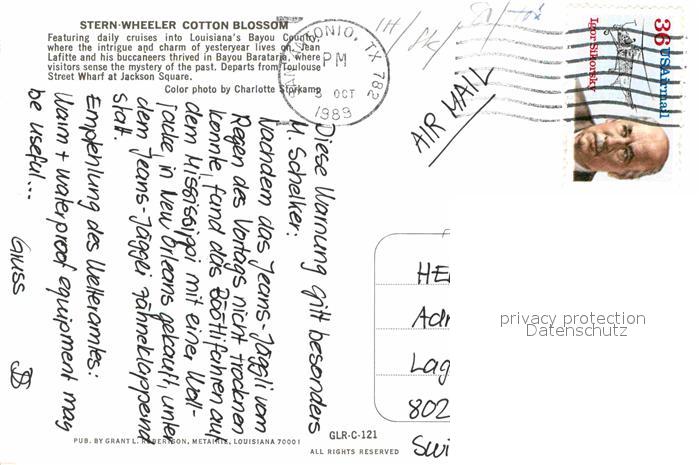 STERN-WHEELER COTTON BLOSSOM
Featuring daily cruises into Louisiana's Bayou Country,
where the intrigue and charm of yesteryear lives on. Jean
Lafitte and his buccaneers thrived in Bayou Barataria, where
visitors sense the mystery of the past. Departs from Toulouse
Street Wharf at Jackson Square.
Color photo by Charlotte Storkamp
SAN ANTONIO, TX 782
PM
OCT
1989
AIR MAIL
36 USAirmail
Igor Sikorsky
Diese Warnung gilt besonders
M. Schelker:
Nachdem das Jeans-Jäggli vom
Regen des Vortags nicht trocknen
konnte, fand das Böötlifahren auf
dem Mississippi mit einer Woll-
jacke, in New Orleans gekauft, unter
dem Jeans-Jäggli zähneklappernd
statt.
Empfehlung des Wetteramtes:
Warm + waterproof equipment may
be useful...
Gruss
HE
Adr
Lag
802
Swi
privacy protection
Datenschutz
PUB. BY GRANT L. ROBERTSON, METAIRIE, LOUISIANA 70001
GLR-C-121
ALL RIGHTS RESERVED